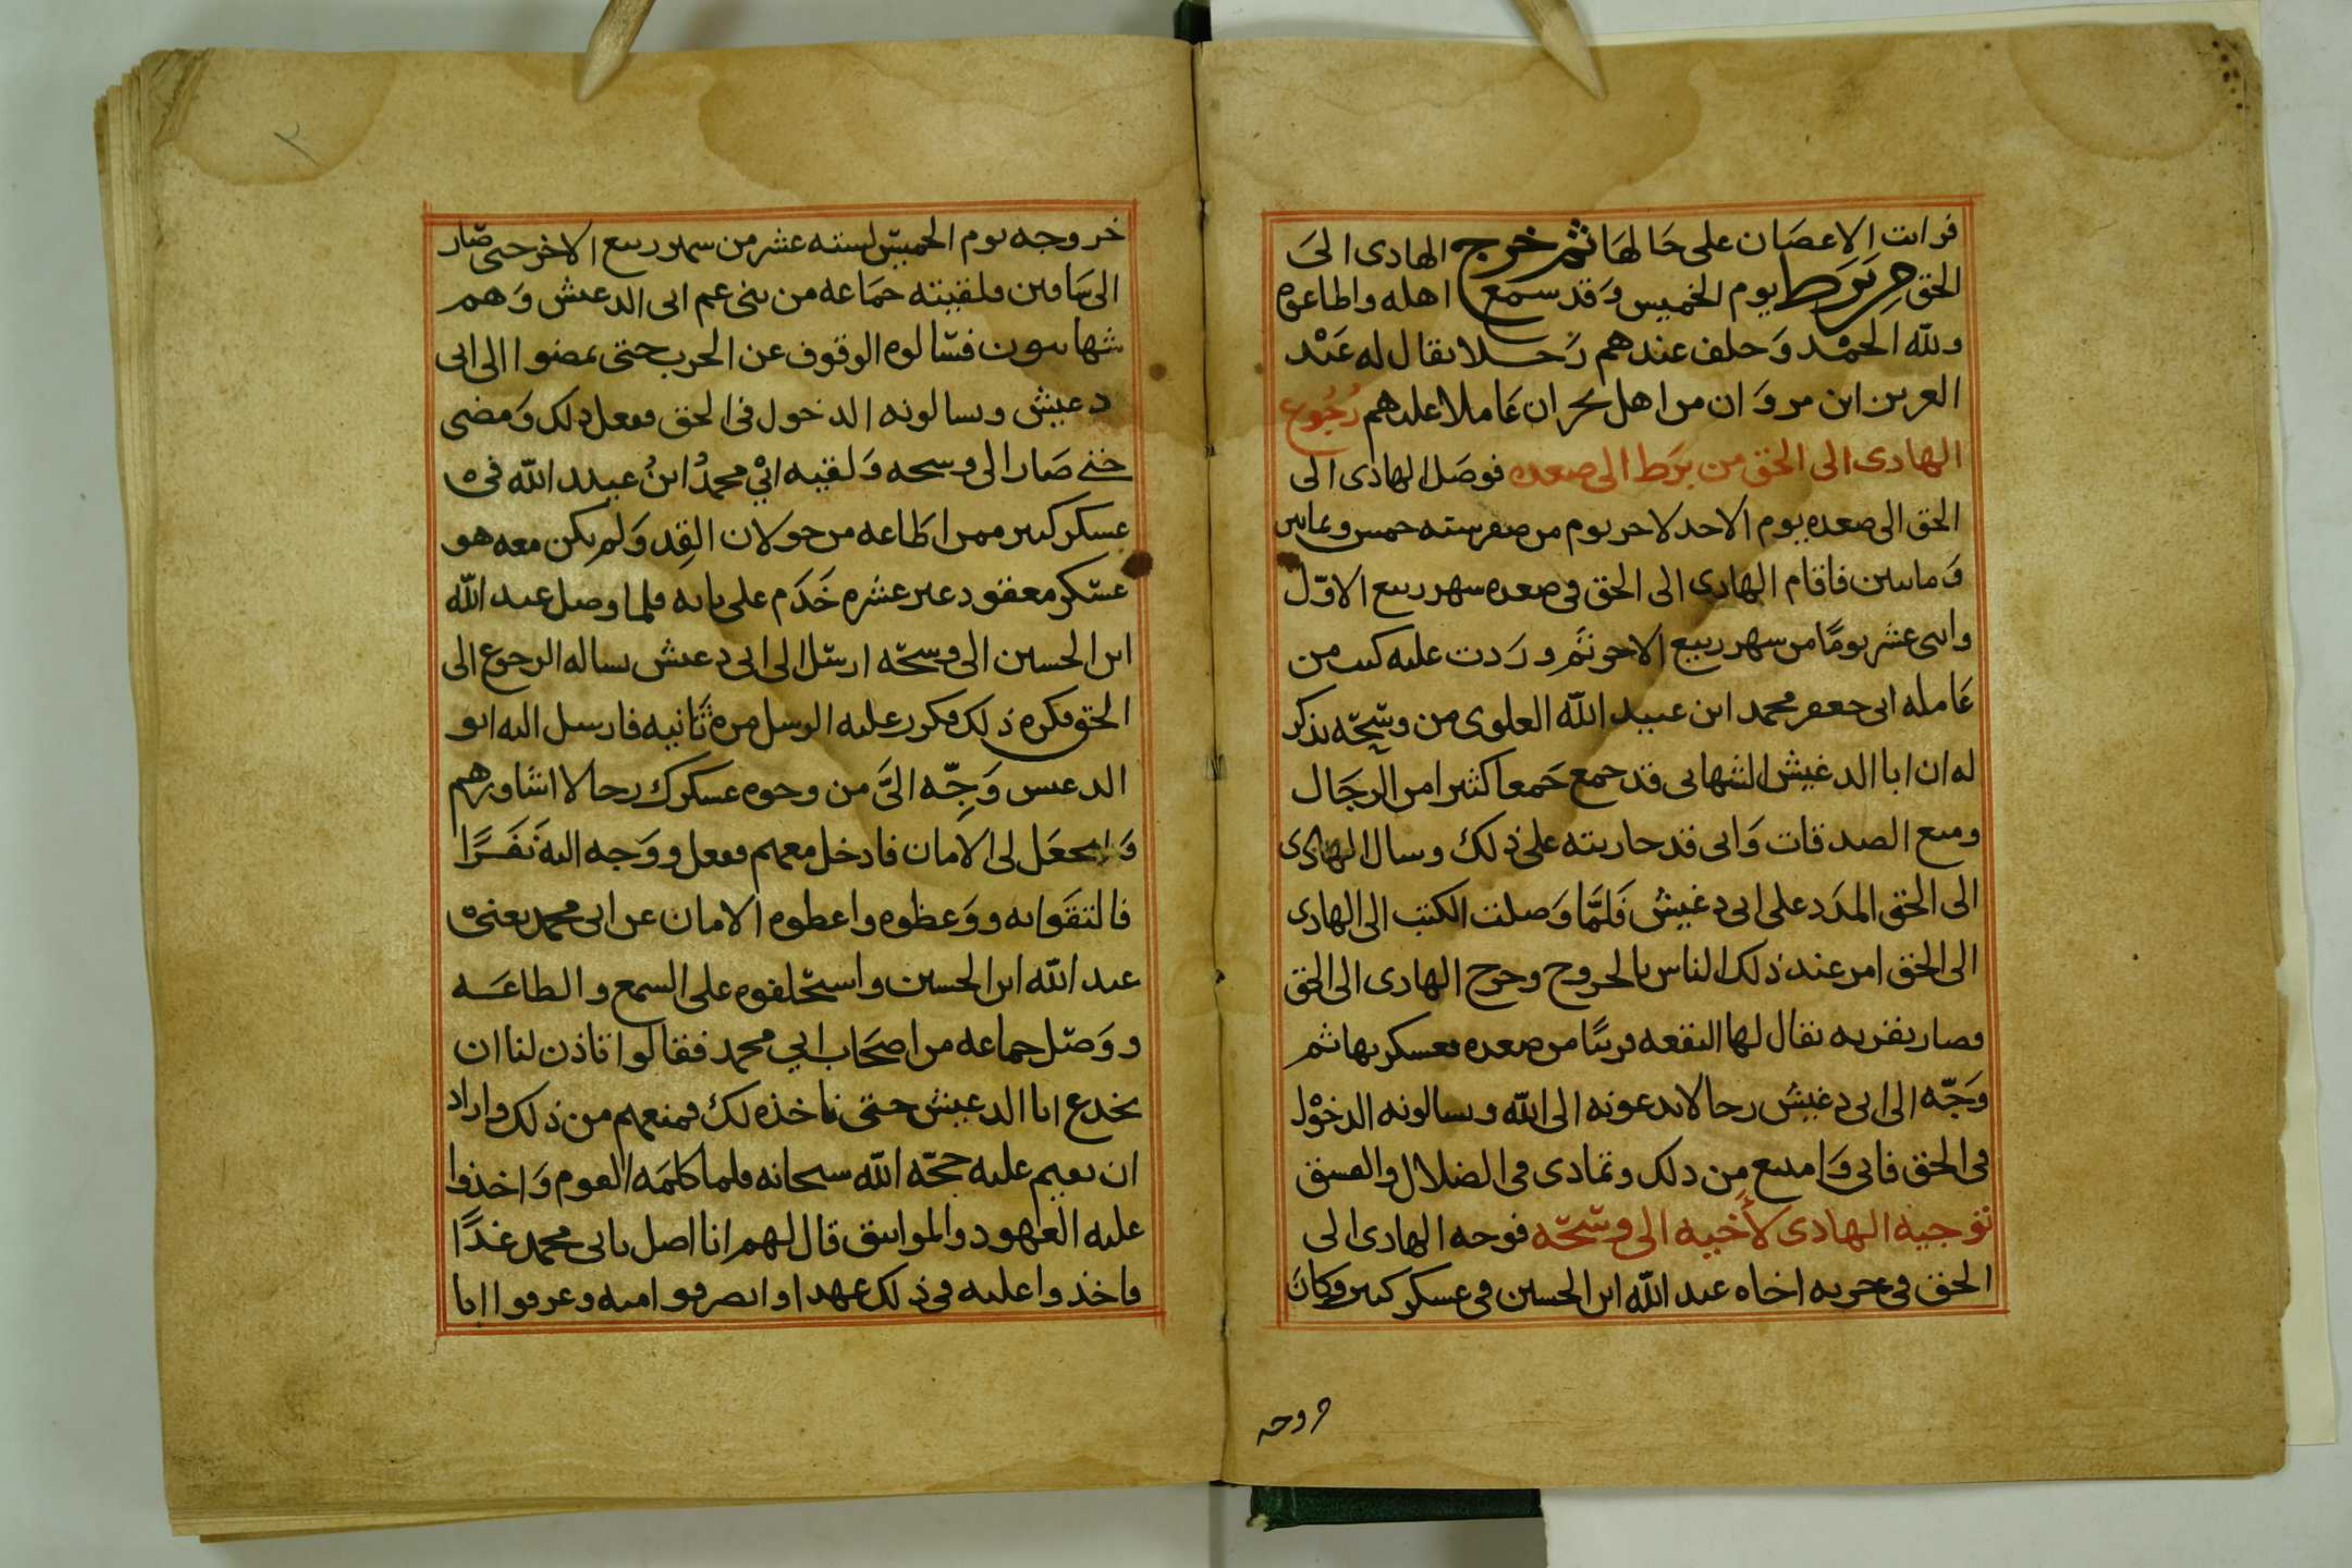 فرات الاعصان على حالها ثم خرج الهادى الى
الحق من برط يوم الخميس وقد سمع اهله واطاعوه
ولله الحمد وخلف عندهم رجلا يقال له عبد
العزيز ابن مروان من اهل نجران عاملا عليهم رجوع
الهادى الى الحق من برط الى صعده فوصل الهادى الى
الحق الى صعده يوم الاحد لاخر يوم من صفر سنه خمس وثمانين
ومائتين فاقام الهادى الى الحق فى صعده شهر ربيع الاول
واثنى عشر يوما من شهر ربيع الاخر ثم وردت عليه كتب من
عامله ابى جعفر محمد ابن عبيد الله العلوى من وشحه يذكر
له ان ابا الدغيش الشهابى قد جمع جمعا كثيرا من الرجال
ومنع الصدقات وانى قد حاربته على ذلك وسال الهادى
الى الحق المدد على ابى دغيش فلما وصلت الكتب الى الهادى
الى الحق امر عند ذلك الناس بالخروج وخرج الهادى الى الحق
فصار بقريه يقال لها البقعه قريبا من صعده فعسكر بها ثم
وجه الى ابى دغيش رجالا يدعونه الى الله ويسالونه الدخول
فى الحق فابى وامتنع من ذلك وتمادى فى الضلال والفسق
توجيه الهادى لأخيه الى وشحه فوجه الهادى الى
الحق فى حربه اخاه عبد الله ابن الحسين فى عسكر كبير وكان
خروجه
خروجه يوم الخميس لسته عشر من شهر ربيع الاخر حتى صار
الى ساقين فلقيته جماعه من بنى عم ابى الدغيش وهم
شهابيون فسالوه الوقوف عن الحرب حتى يمضوا الى ابى
دغيش ويسالونه الدخول فى الحق ففعل ذلك ومضى
حتى صار الى وسحه ولقيه ابي محمد ابن عبيد الله فى
عسكر كبير ممن اطاعه من خولان القد ولم يكن معه هو
عسكر معقود غير عشره خدم على بابه فلما وصل عبد الله
ابن الحسين الى وسحه ارسل الى ابى دغيش يساله الرجوع الى
الحق فكره ذلك فكرر عليه الرسل مره ثانيه فارسل اليه ابو
الدغيش وجه الى من وجوه عسكرك رجالا اشاورهم
واجعل لى الامان فادخل معهم ففعل ووجه اليه نفرا
فالتقوا به ووعظوه واعطوه الامان عن ابى محمد يعنى
عبد الله ابن الحسين واستحلفوه على السمع والطاعه
ووصل جماعه من اصحاب ابي محمد فقالوا تاذن لنا ان
نخدع ابا الدغيش حتى ناخذه لك فمنعهم من ذلك واراد
ان يقيم عليه حجه الله سبحانه فلما كلمه القوم واخذوا
عليه العهود والمواثيق قال لهم انا اصل بابى محمد غدا
فاخذوا عليه فى ذلك عهدا وانصرفوا منه وعرفوا ابا